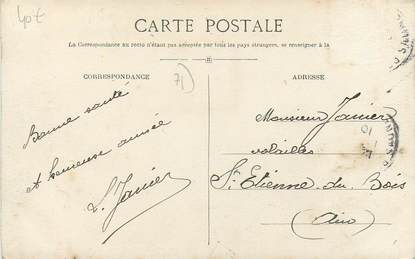 40t
CARTE POSTALE
La Correspondance au recto n'étant pas acceptée par tous les pays étrangers, se renseigner à la
CORRESPONDANCE
71
ADRESSE
Bonne santé
et heureuse année
L. Janier
Monsieur Janier
volailles
St Etienne du Bois
(Ain)